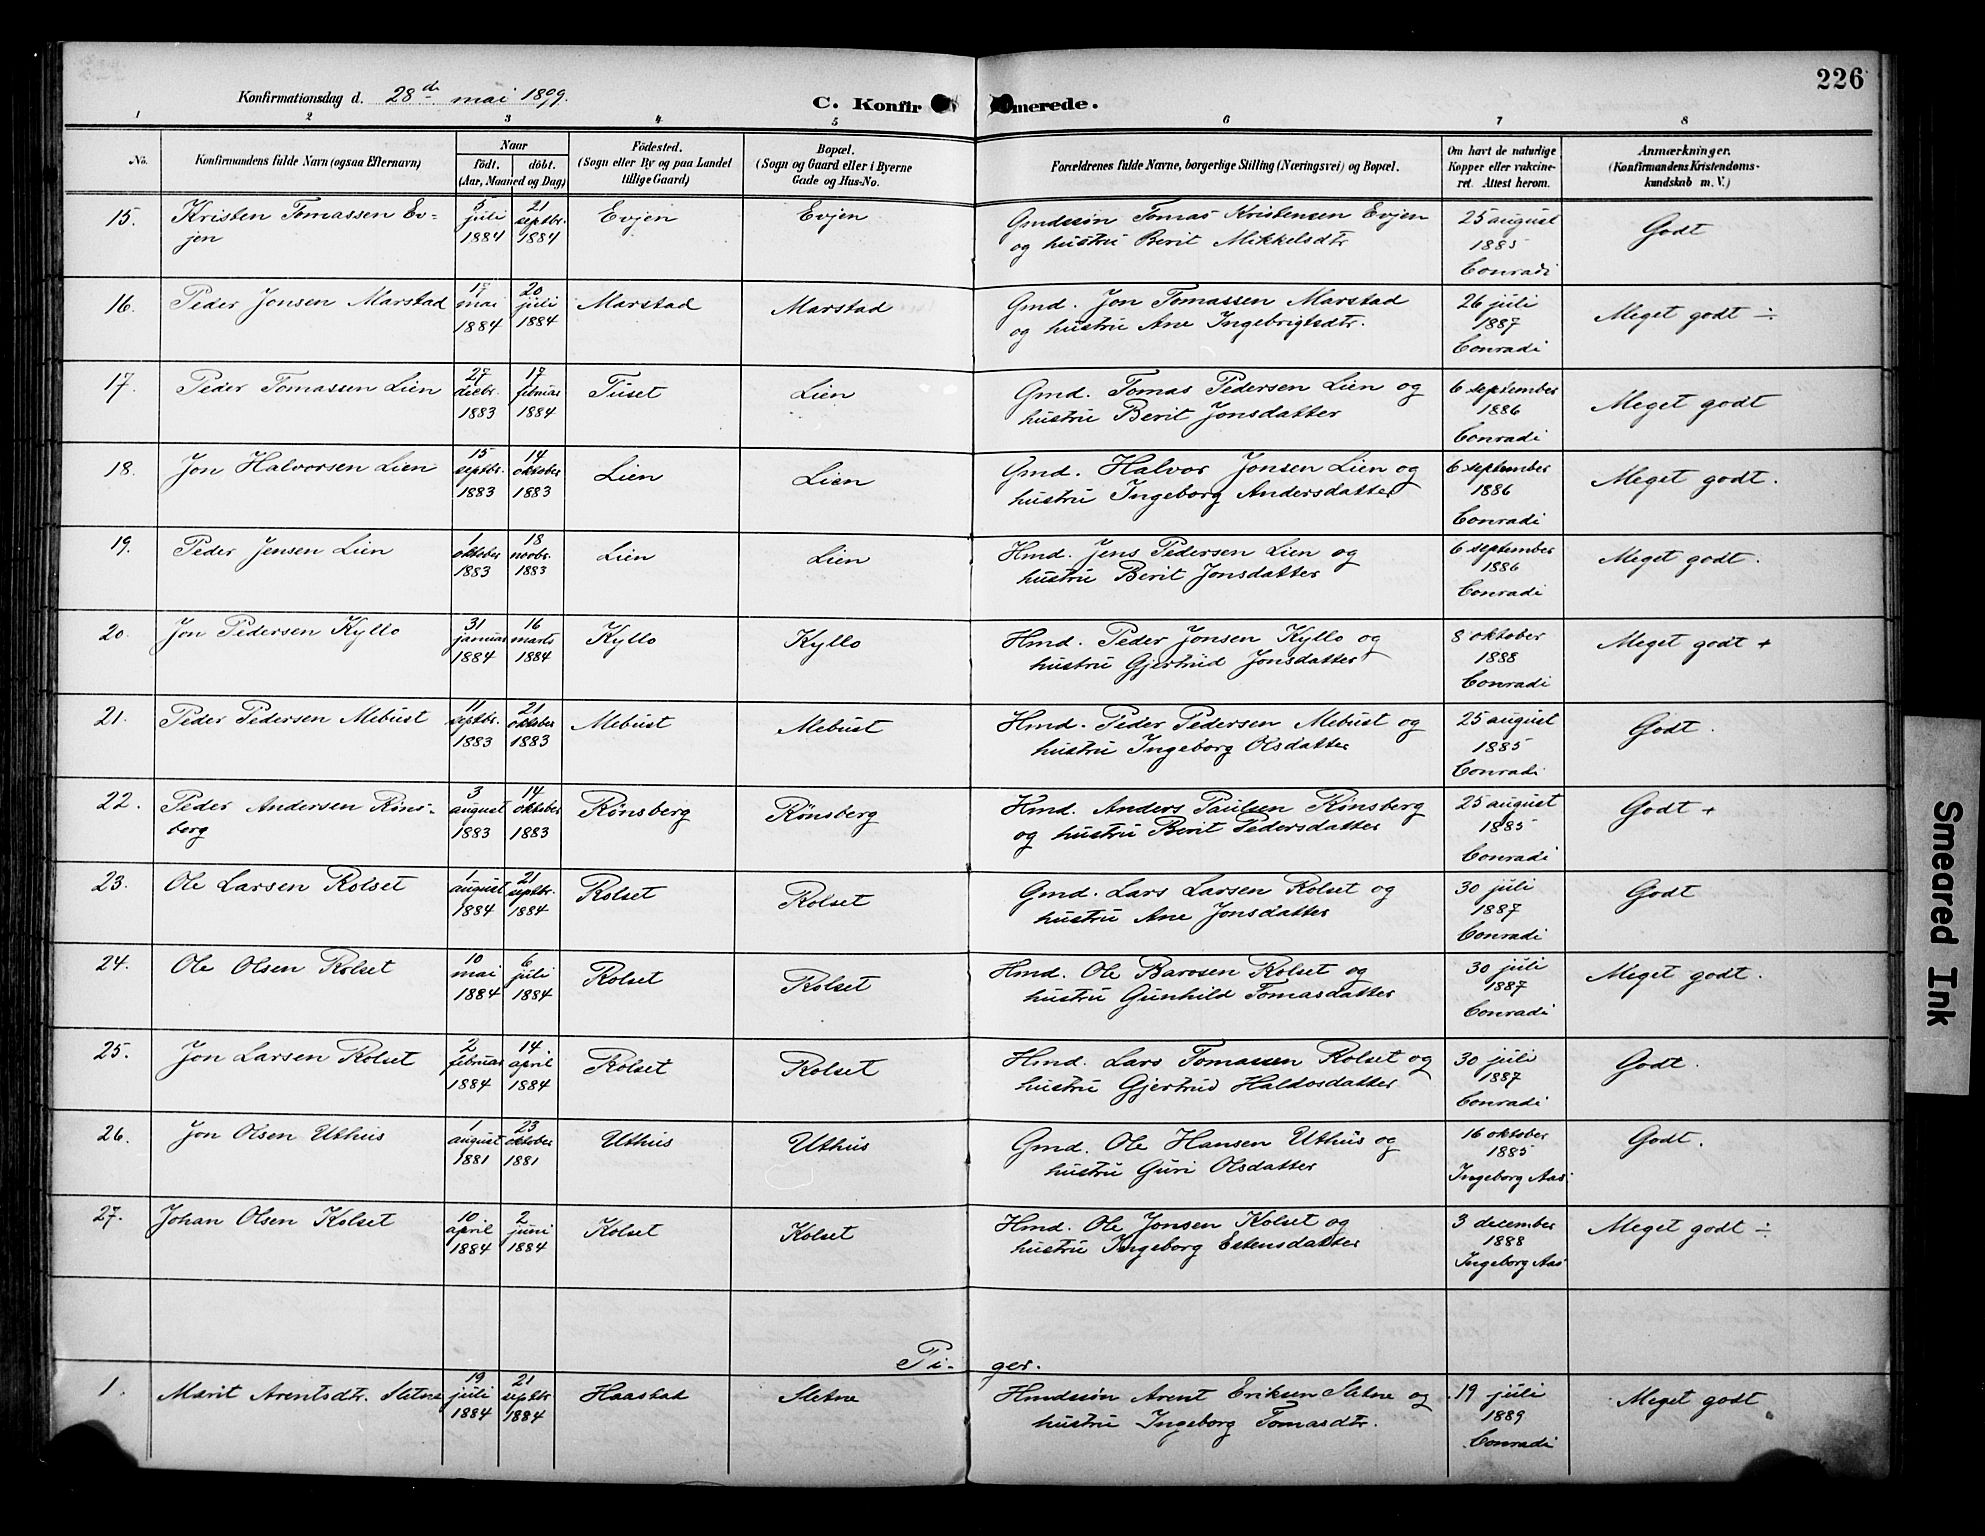 226
Konfirmationsdag d. 28de mai 1899.
C. Konfirmerede.
1 2 3 4 5 6 7 8
No.
Konfirmandens fulde Navn (ogsaa Efternavn)
Naar
födt. döbt.
(Aar, Maaned og Dag)
Födested.
(Sogn eller By og paa Landet
tillige Gaard)
Bopæl.
(Sogn og Gaard eller i Byerne
Gade og Hus-No.
Forældrenes fulde Navne, borgerlige Stilling (Næringsvei) og Bopæl.
Om havt de naturlige
Kopper eller vakcine-
ret. Attest herom.
Anmærkninger.
(Konfirmandens Kristendoms-
kundskab m. V.)
15. Kristen Tomassen Ev=
jen
5 juli 1884
21 septbr. 1884
Evjen
Evjen
Gmdssøn Tomas Kristensen Evjen
og hustru Berit Mikkelsdtr
25 august
1885
Conradi
Godt
16. Peder Jonsen Marstad
17 mai 1884
20 juli 1884
Marstad
Marstad
Gmd. Jon Tomassen Marstad
og hustru Ane Ingebrigtsdtr.
26 juli
1887
Conradi
Meget godt ÷
17. Peder Tomassen Lien
27 decbr. 1883
17 februar 1884
Tuset
Lien
Gmd. Tomas Pedersen Lien og
hustru Berit Jonsdatter
6 september
1886
Conradi
Meget godt
18. Jon Halvorsen Lien
15 septbr. 1883
14 oktober 1883
Lien
Lien
Gmd. Halvor Jonsen Lien og
hustru Ingeborg Andersdatter
6 september
1886
Conradi
Meget godt.
19. Peder Jensen Lien
1 oktober 1883
18 novbr. 1883
Lien
Lien
Hmd. Jens Pedersen Lien og
hustru Berit Jonsdatter
6 september
1886
Conradi
Meget godt.
20. Jon Pedersen Kyllo
31 januar 1884
16 marts 1884
Kyllo
Kyllo
Hmd. Peder Jonsen Kyllo og
hustru Gjertrud Jonsdatter
8 oktober
1888
Conradi
Meget godt +
21. Peder Pedersen Mebust
11 septbr. 1883
21 oktober 1883
Mebust
Mebust
Hmd. Peder Pedersen Mebust og
hustru Ingeborg Olsdatter
25 august
1885
Conradi
Godt.
22. Peder Andersen Røns-
berg
3 august 1883
14 oktober 1883
Rønsberg
Rønsberg
Hmd. Anders Paulsen Rønsberg
og hustru Berit Pedersdatter
25 august
1885
Conradi
Godt +
23. Ole Larsen Rolset
1 august 1884
21 septbr. 1884
Rolset
Rolset
Gmd. Lars Larsen Rolset og
hustru Ane Jonsdatter
30 juli
1887
Conradi
Godt
24. Ole Olsen Rolset
10 mai 1884
6 juli 1884
Rolset
Rolset
Hmd. Ole Barosen Rolset og
hustru Gunhild Tomasdatter
30 juli
1887
Conradi
Meget godt.
25. Jon Larsen Rolset
2 februar 1884
14 april 1884
Rolset
Rolset
Hmd. Lars Tomassen Rolset og
hustru Gjertrud Haldosdatter
30 juli
1887
Conradi
Godt.
26. Jon Olsen Uthus
1 august 1881
23 oktober 1881
Uthus
Uthus
Gmd. Ole Hansen Uthus og
hustru Guri Olsdatter
16 oktober
1885
Ingeborg Aas
Godt.
27. Johan Olsen Kolset
10 april 1884
2 juni 1884
Kolset
Kolset
Hmd. Ole Jonsen Kolset og
hustru Ingeborg Estensdatter
3 december
1888
Ingeborg Aas
Meget godt ÷
Pi- ger.
1. Marit Arentsdtr. Sletne
19 juli 1884
21 septbr 1884
Haastad
Sletne
Hmdssøn Arent Eriksen Sletne og
hustru Ingeborg Tomasdtr.
19 juli
1889
Conradi
Meget godt
Smeared Ink